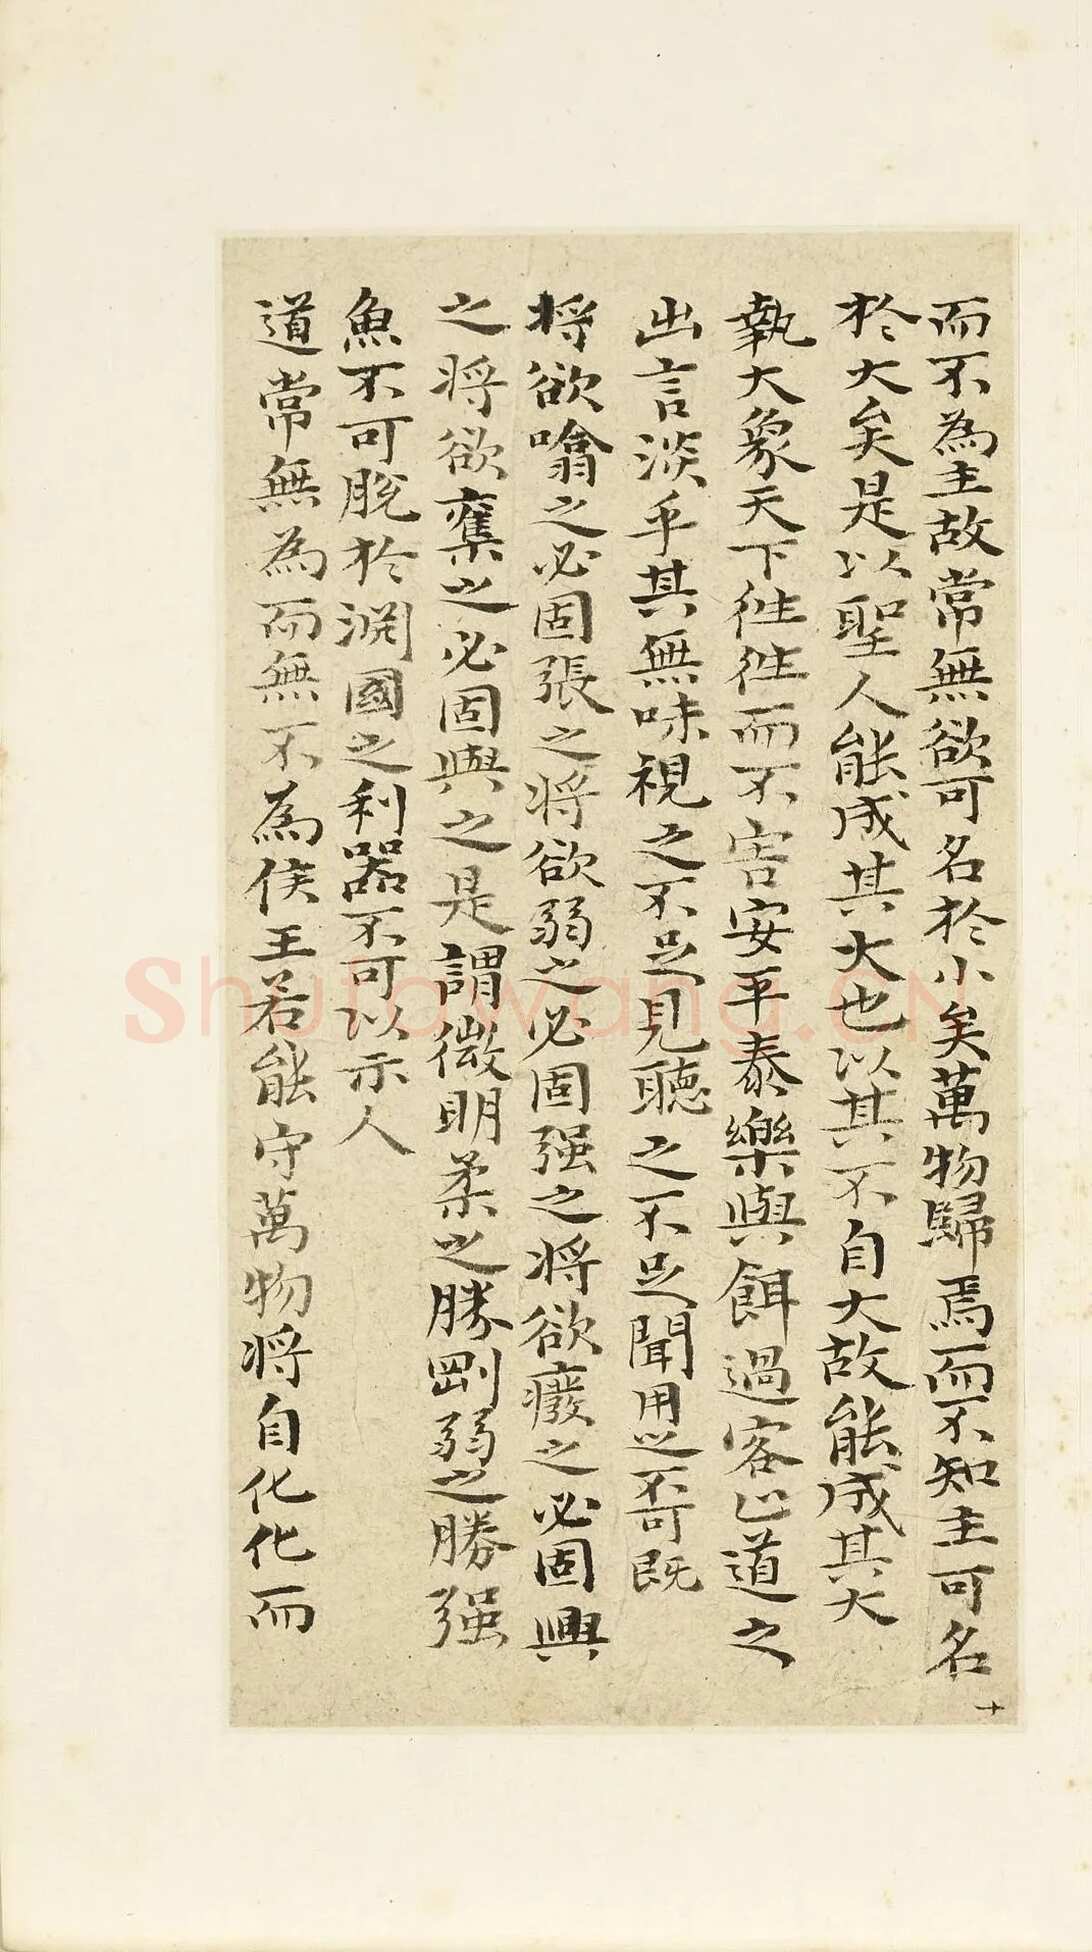 而不為主故常無欲可名於小矣萬物歸焉而不知主可名
於大矣是以聖人能成其大也以其不自大故能成其大
執大象天下往往而不害安平泰樂與餌過客止道之
出言淡乎其無味視之不足見聽之不足聞用之不可既
將欲噏之必固張之將欲弱之必固强之將欲癈之必固興
之將欲奪之必固與之是謂微明柔之勝剛弱之勝强
魚不可脫於淵國之利器不可以示人
道常無為而無不為侯王若能守萬物將自化化而
十
Shufawang.CN